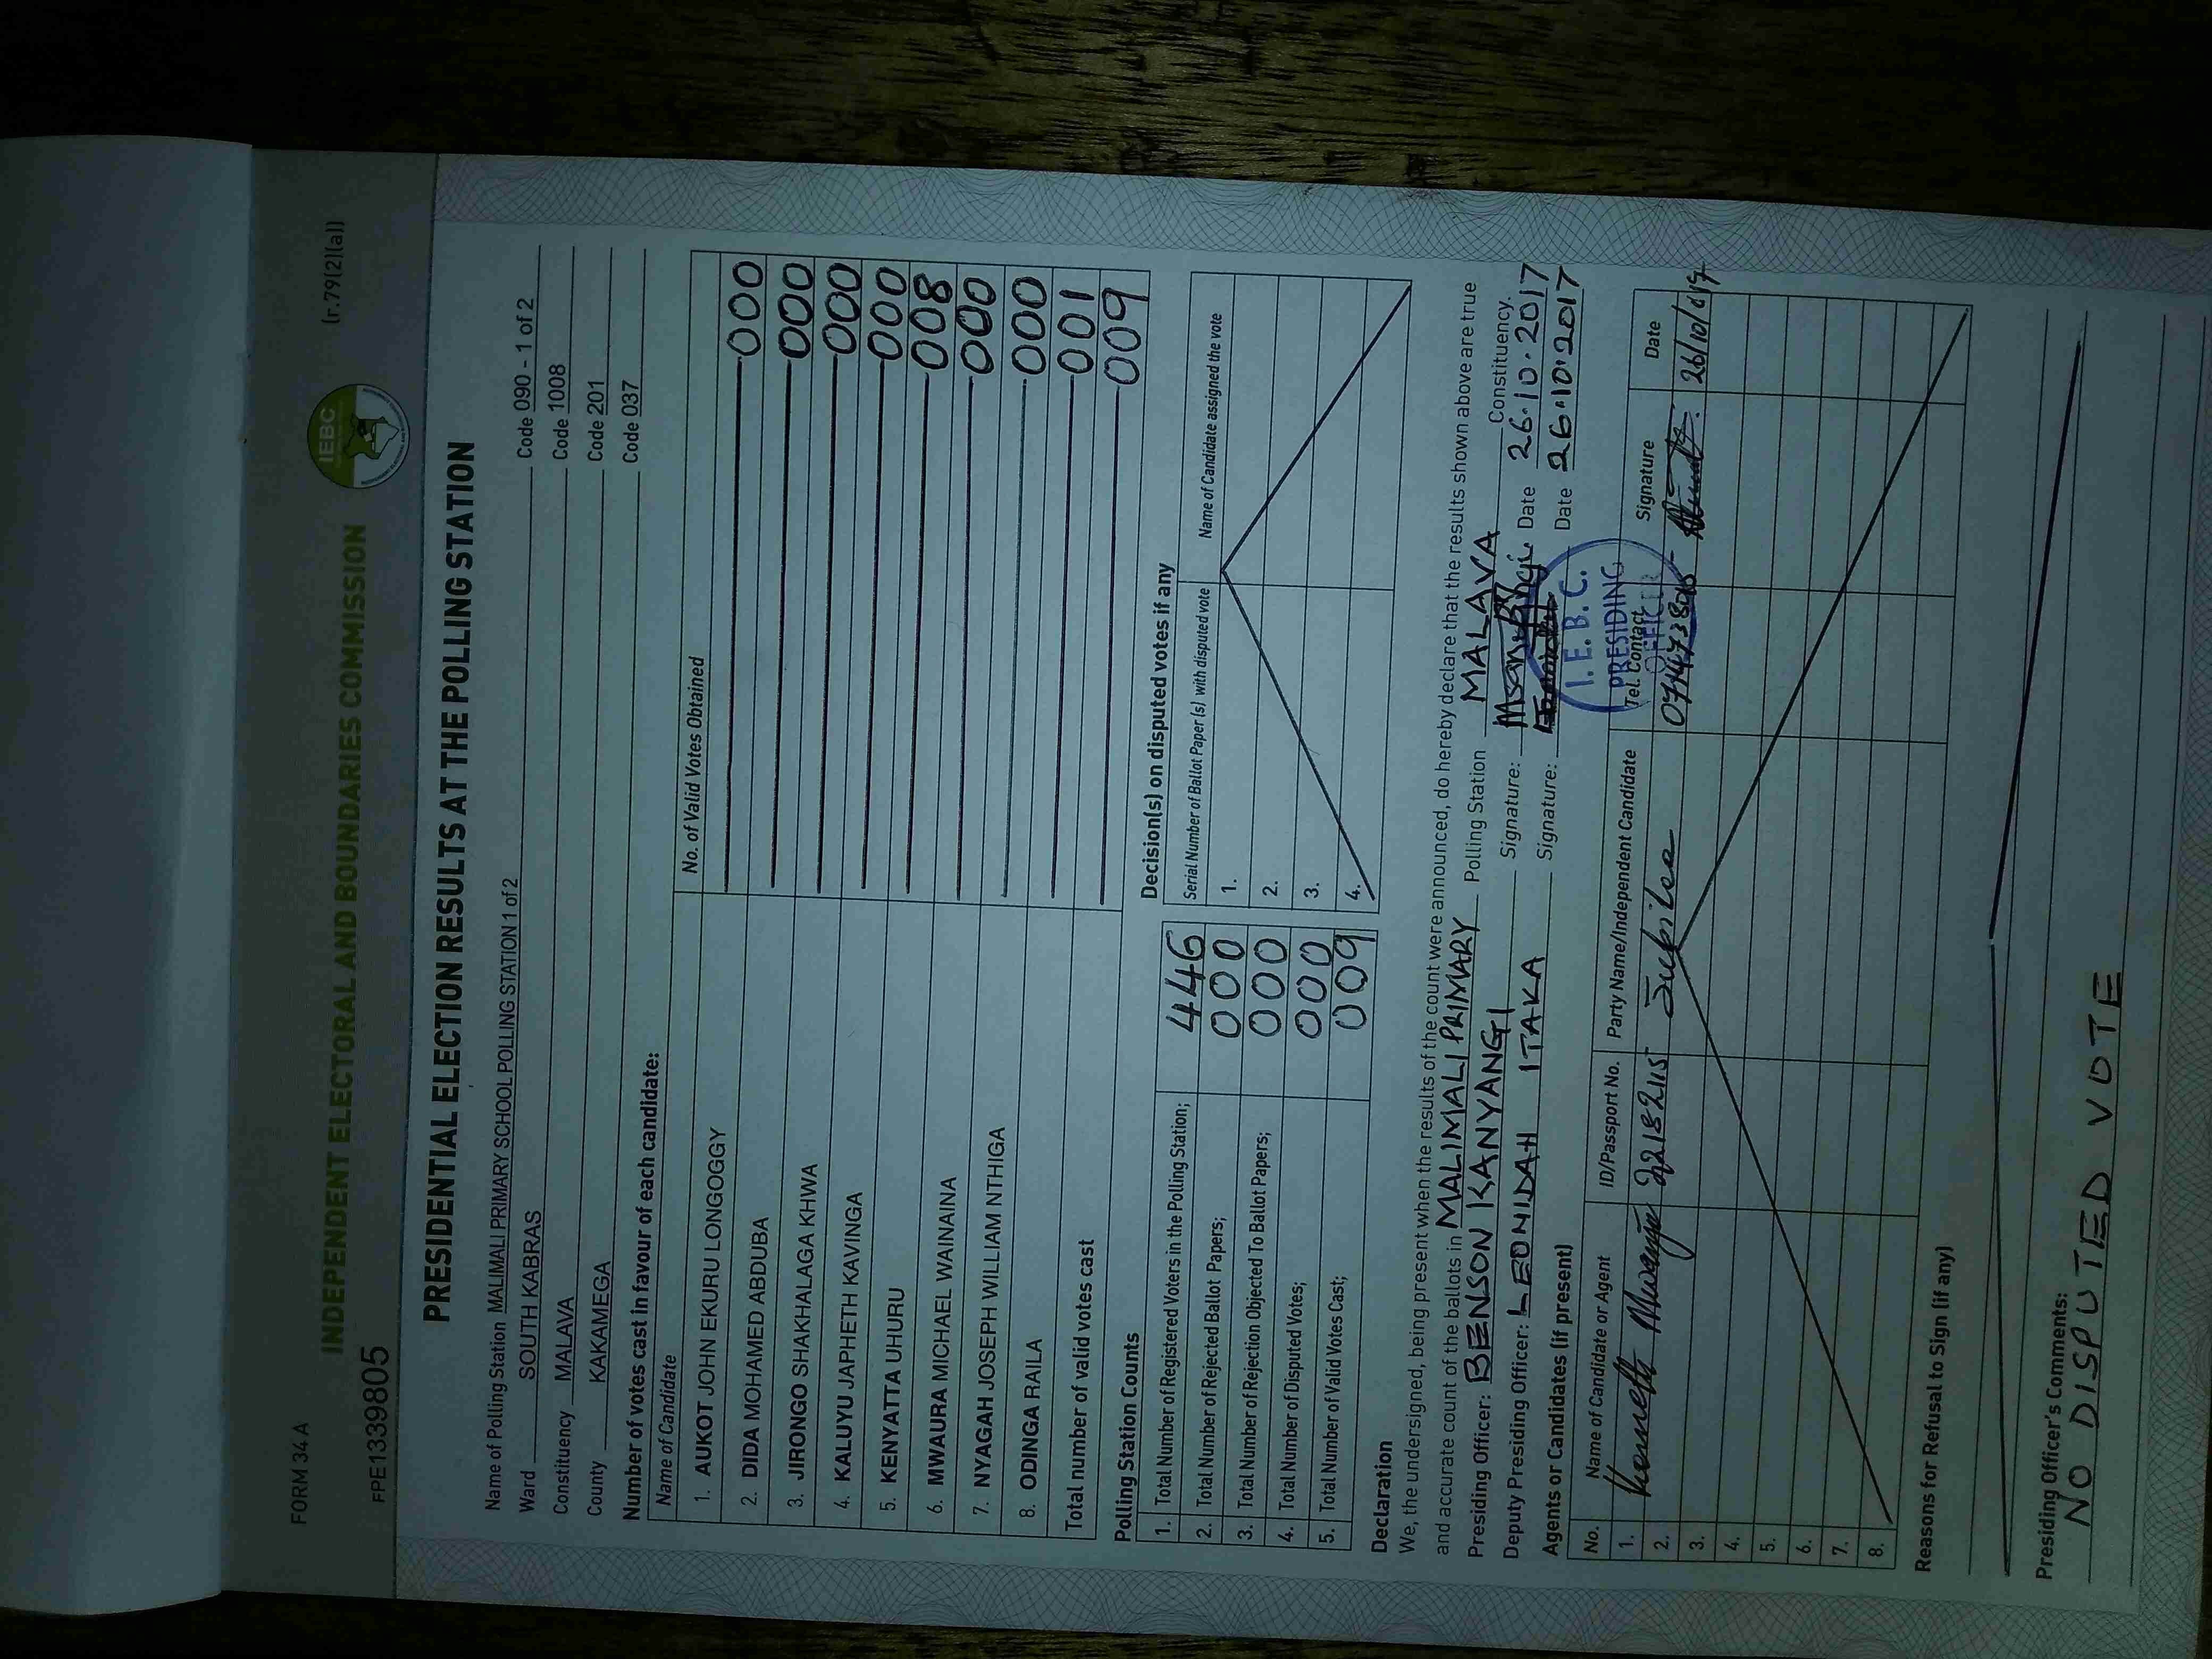 FORM 34 A
IEBC
(r.79(2)(a))
INDEPENDENT ELECTORAL AND BOUNDARIES COMMISSION
FPE1339805
PRESIDENTIAL ELECTION RESULTS AT THE POLLING STATION
Name of Polling Station MALIMALI PRIMARY SCHOOL POLLING STATION 1 of 2 Code 090 - 1 of 2
Ward SOUTH KABRAS Code 1008
Constituency MALAVA Code 201
County KAKAMEGA Code 037
Number of votes cast in favour of each candidate:
Name of Candidate No. of Valid Votes Obtained
1. AUKOT JOHN EKURU LONGOGGY 000
2. DIDA MOHAMED ABDUBA 000
3. JIRONGO SHAKHALAGA KHWA 000
4. KALUYU JAPHETH KAVINGA 000
5. KENYATTA UHURU 008
6. MWAURA MICHAEL WAINAINA 000
7. NYAGAH JOSEPH WILLIAM NTHIGA 000
8. ODINGA RAILA 001
Total number of valid votes cast 009
Polling Station Counts
1. Total Number of Registered Voters in the Polling Station; 446
2. Total Number of Rejected Ballot Papers; 000
3. Total Number of Rejection Objected To Ballot Papers; 000
4. Total Number of Disputed Votes; 000
5. Total Number of Valid Votes Cast; 009
Decision(s) on disputed votes if any
Serial Number of Ballot Paper (s) with disputed vote Name of Candidate assigned the vote
1.
2.
3.
4.
Declaration
We, the undersigned, being present when the results of the count were announced, do hereby declare that the results shown above are true
and accurate count of the ballots in MALIMALI PRIMARY Polling Station MALAVA Constituency.
Presiding Officer: BENSON KANYANGI Signature: Date 26.10.2017
Deputy Presiding Officer: LEONIDAH ITAKA Signature: Date 26.10.2017
I.E.B.C.
PRESIDING
OFFICER
Agents or Candidates (if present)
No. Name of Candidate or Agent ID/Passport No. Party Name/Independent Candidate Tel. Contact Signature Date
1. Kenneth Mwangi 22182115 Jubilee
2.
3.
4.
5.
6.
7.
8.
Reasons for Refusal to Sign (if any)
Presiding Officer's Comments:
NO DISPUTED VOTE